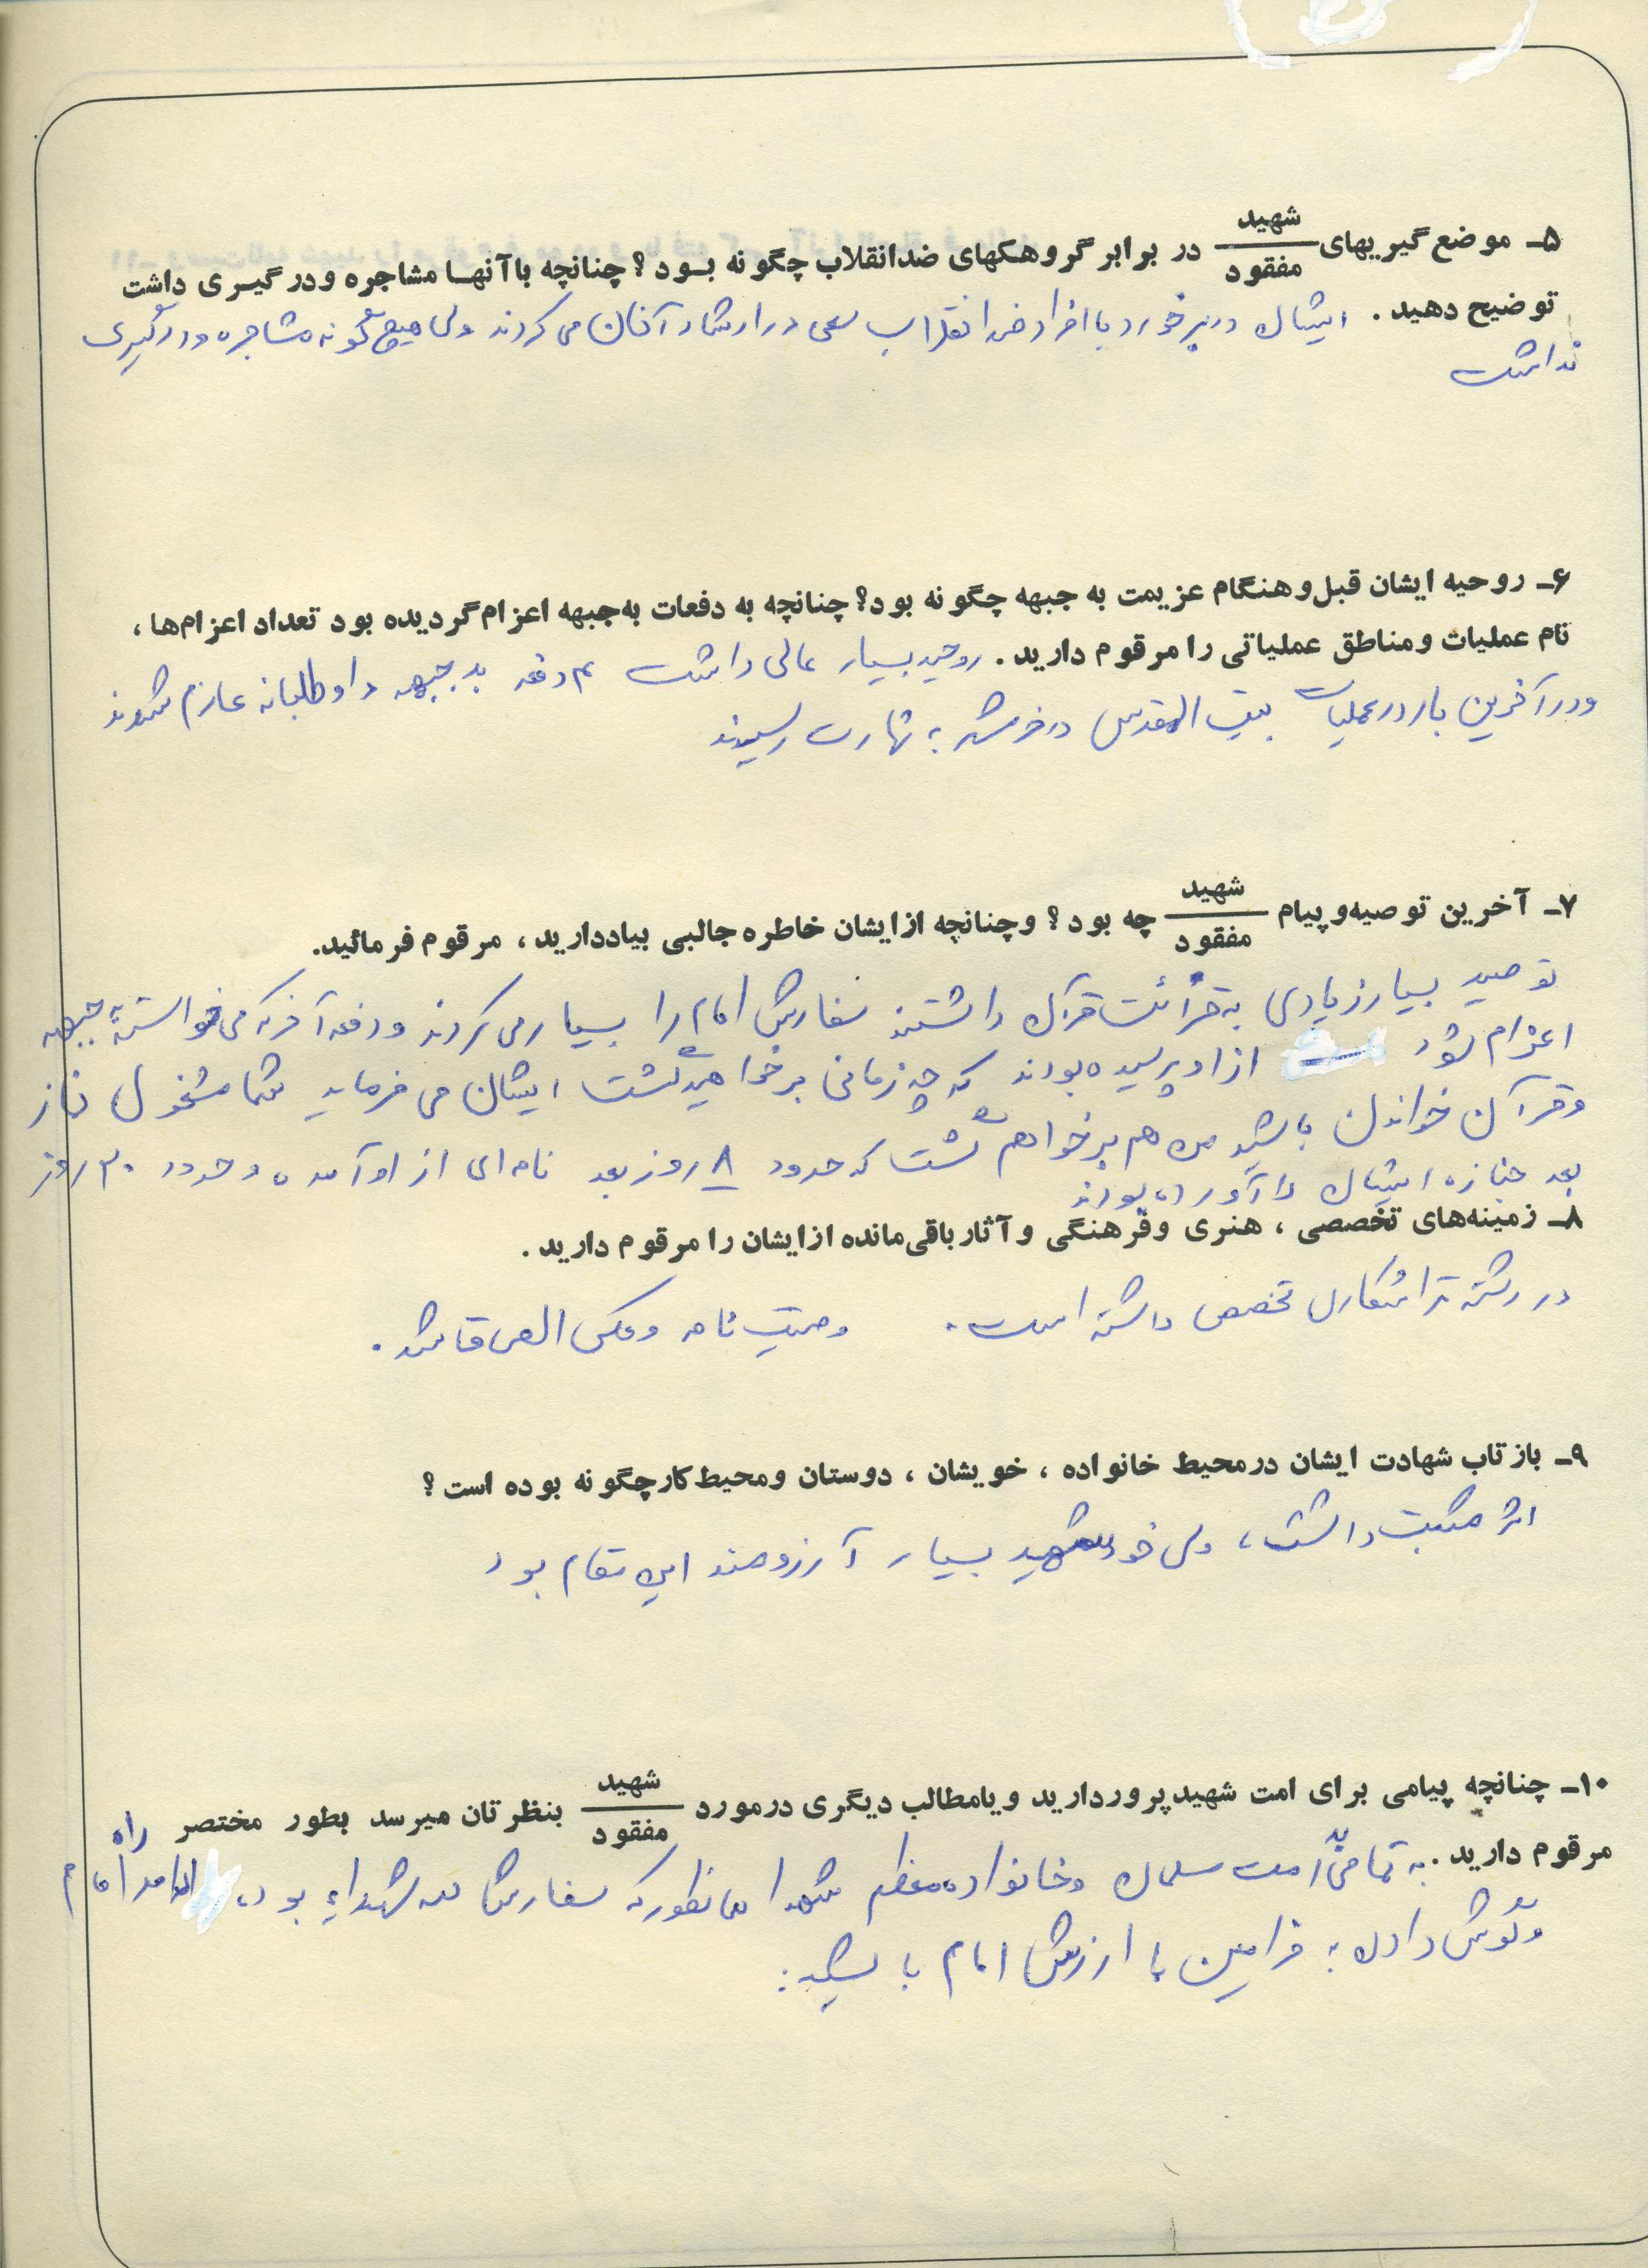 ۵ـ موضع گیریهای شهید / مفقود در برابر گروهکهای ضدانقلاب چگونه بود؟ چنانچه با آنها مشاجره و درگیری داشت
توضیح دهید. ایشان در برخورد با افراد ضد انقلاب سعی در ارشاد آنان می کردند ولی هیچ گونه مشاجره و درگیری
نداشت
۶ـ روحیه ایشان قبل و هنگام عزیمت به جبهه چگونه بود؟ چنانچه به دفعات به جبهه اعزام گردیده بود تعداد اعزام‌ها،
نام عملیات و مناطق عملیاتی را مرقوم دارید. روحیه بسیار عالی داشت دفعه به جبهه داوطلبانه عازم شدند
و در آخرین بار در عملیات بیت المقدس در خرمشهر به شهادت رسیدند
۷ـ آخرین توصیه و پیام شهید / مفقود چه بود؟ و چنانچه از ایشان خاطره جالبی بیاد دارید، مرقوم فرمائید.
توصیه بسیار زیادی به قرائت قرآن داشتند سفارش امام را بسیار می کردند و دفعه آخر که می خواست به جبهه
اعزام شود از او پرسیده بودند که چه زمانی برخواهید گشت ایشان می فرماید شما مشغول نماز
و قرآن خواندن باشید من هم برخواهم گشت که حدود ۸ روز بعد نامه ای از او آمده و حدود ۲۰ روز
بعد جنازه ایشان را آورده بودند
۸ـ زمینه‌های تخصصی، هنری و فرهنگی و آثار باقی‌مانده از ایشان را مرقوم دارید.
در رشته تراشکاری تخصص داشته است. وصیت نامه و عکس
۹ـ بازتاب شهادت ایشان در محیط خانواده، خویشان، دوستان و محیط کار چگونه بوده است؟
اثر مثبت داشت، ولی خود شهید بسیار آرزومند این مقام بود
۱۰ـ چنانچه پیامی برای امت شهیدپرور دارید و یا مطالب دیگری در مورد شهید / مفقود بنظرتان میرسد بطور مختصر
مرقوم دارید. به تمامی امت مسلمان و خانواده معظم شهدا همانطور که سفارش همه شهداء بود، راه امام
و گوش دادن به فرامین با ارزش امام باشید: